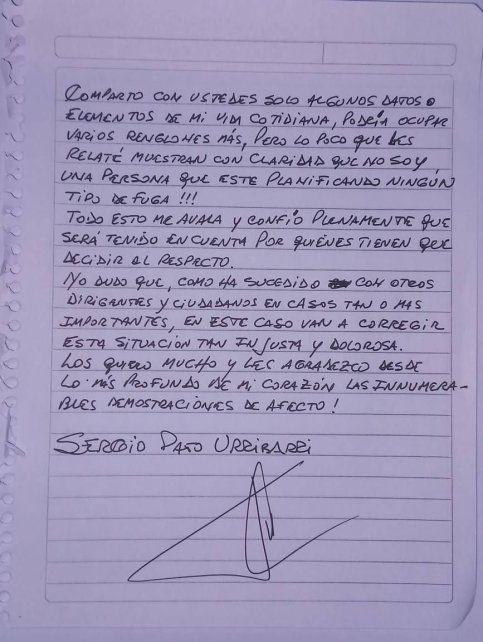 COMPARTO CON USTEDES SOLO ALGUNOS DATOS O
ELEMENTOS DE MI VIDA COTIDIANA, PODRÍA OCUPAR
VARIOS RENGLONES MÁS, PERO LO POCO QUE LES
RELATÉ MUESTRAN CON CLARIDAD QUE NO SOY
UNA PERSONA QUE ESTE PLANIFICANDO NINGÚN
TIPO DE FUGA !!!
TODO ESTO ME AVALA Y CONFÍO PLENAMENTE QUE
SERÁ TENIDO EN CUENTA POR QUIÉNES TIENEN QUE
DECIDIR AL RESPECTO.
NO DUDO QUE, COMO HA SUCEDIDO CON OTROS
DIRIGENTES Y CIUDADANOS EN CASOS TAN O MAS
IMPORTANTES, EN ESTE CASO VAN A CORREGIR
ESTA SITUACIÓN TAN INJUSTA Y DOLOROSA.
LOS QUIERO MUCHO Y LES AGRADEZCO DESDE
LO MÁS PROFUNDO DE MI CORAZÓN LAS INNUMERA-
BLES DEMOSTRACIONES DE AFECTO !
SERGIO PATO URRIBARRI